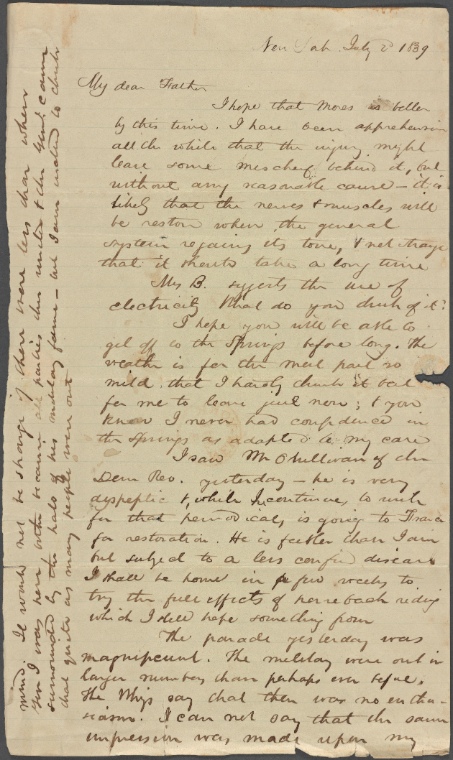 New York July 3 1839
My dear Father
I hope that Moses is better
by this time. I have been apprehensive
all the while that the injury might
leave some mischief behind it, but
without any reasonable cause – it is
likely that the nerves & muscles will
be restored when the general
system regains its tone, & not strange
that it should take a long time
Mrs B. suggests the use of
electricity. What do you think of it?
I hope you will be able to
get off to the Springs before long. The
weather is for the most part so
mild that I hardly think it best
for me to leave just now; & you
know I never had confidence in
the Springs as adapted to my case
I saw Mr O'Sullivan of the
Dem Rev. yesterday – he is very
dispeptic &, while he continues to write
for that periodical, is going to France
for restoration. He is fatter than I am
but subject to a less confined disease
I shall be home in a few weeks to
try the full effects of horseback riding
which I still hope something from
The parade yesterday was
magnificent. The military were out in
larger numbers than perhaps ever before.
The Whigs say that there was no enthu-
siasm. I can not say that the same
impression was made upon my
mind. It would not be strange if there were less than when
Gen J was here, both because all parties then united & the Genl came
surrounded by the halo of his military fame – but I am inclined to think
that quite as many people were out